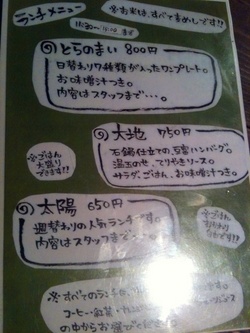 ランチメニュー
※お米は、すべて玄めしです!!
11:30~
とらのまい 800円
日替わり7種類が入ったワンプレート。
お味噌汁つき。
内容はスタッフまで・・・。
大地 750円
石鍋仕立ての豆富ハンバーグ。
温玉のせ、てりやきソース。
サラダ、ごはん、お味噌汁つき。
※ごはん
大盛り
できます!!
太陽 650円
週替わりの人気ランチです。
内容はスタッフまで・・・。
※ごはん
おかわり
※すべてのランチ
コーヒー・紅茶・
の中からお選びください